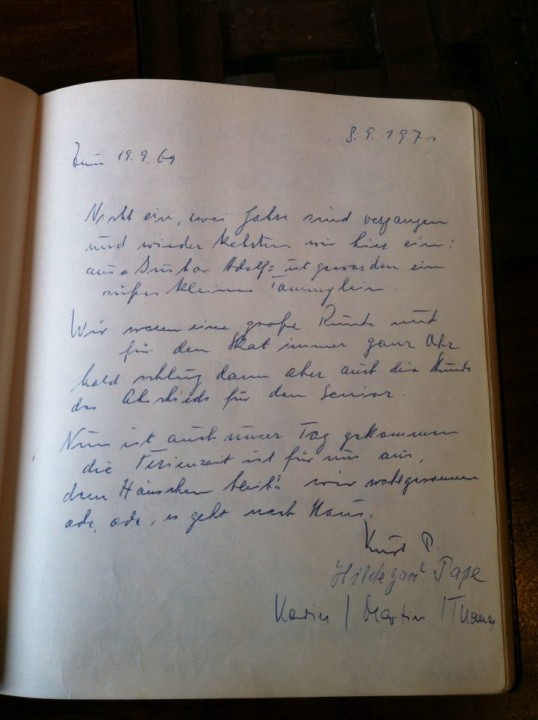 8.9.1971
Zum 19.9.69
Nicht ein, zwei Jahre sind vergangen
und wieder kehrten wir hier ein:
aus Adolf = ist geworden ein
süßes kleines
Wir waren eine große Runde und
für den Skat immer ganz Ohr
bald schlug dann aber auch die Stunde
des Abschieds für den Senior.
Nun ist auch unser Tag gekommen
die Ferienzeit ist für uns aus,
dem Häuschen bleib'n wir wohlgesonnen
ade, ade, es geht nach Haus.
Kurt P.
Hildegard Pape
Karin / Martin / Thomas